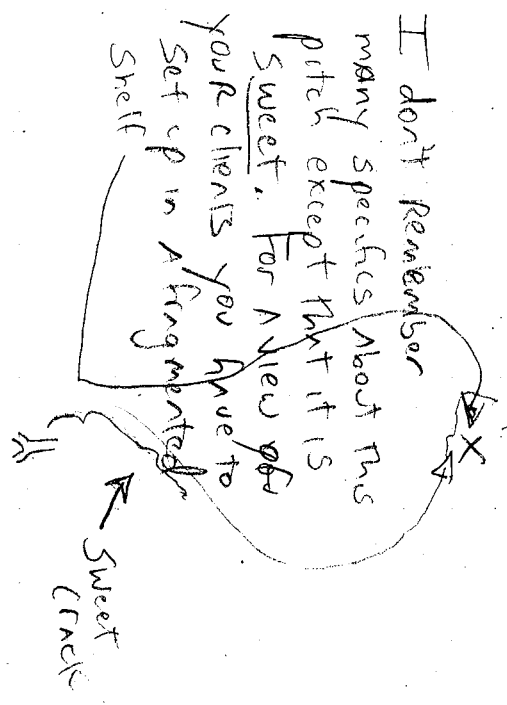 I don't Remember
many specifics About this
pitch except that it is
sweet. For A view of
your clients you have to
Set up in A fragmented
Shelf
X
Sweet
Crack